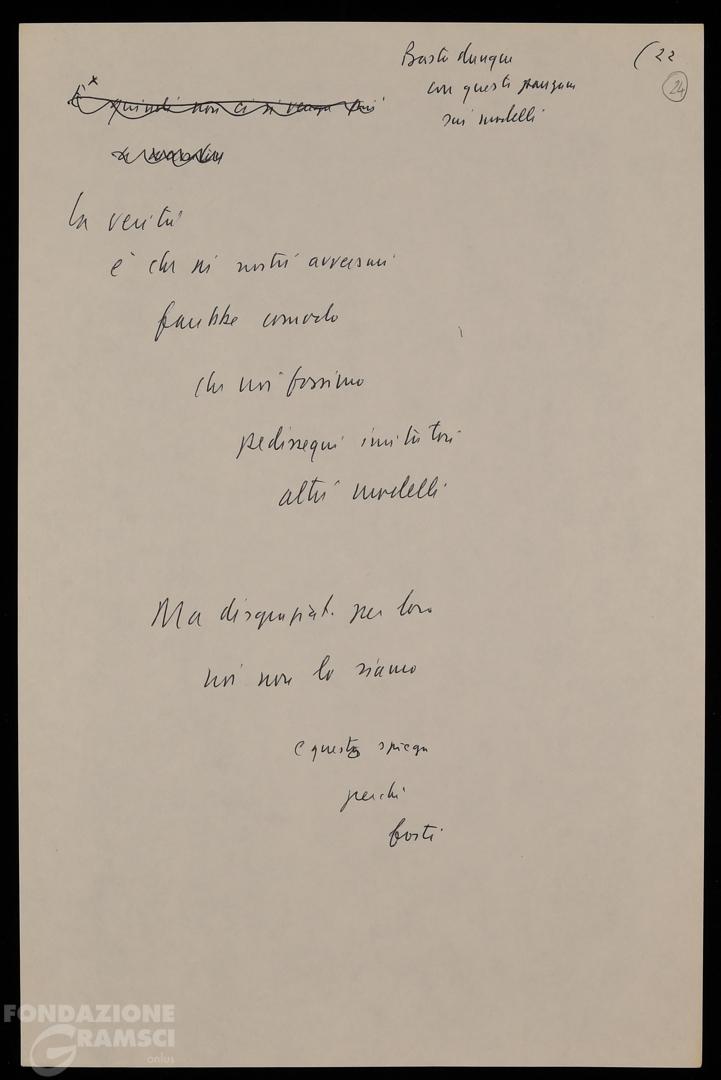 Basta dunque
con questi
sui modelli
(22
24
E quindi non ci si venga più
La verità
è che ai nostri avversari
farebbe comodo
che noi fossimo
pedissequi imitatori
altrui modelli
Ma disgraziat. per loro
noi non lo siamo
e questo spiega
perché
forti
FONDAZIONE
GRAMSCI
onlus